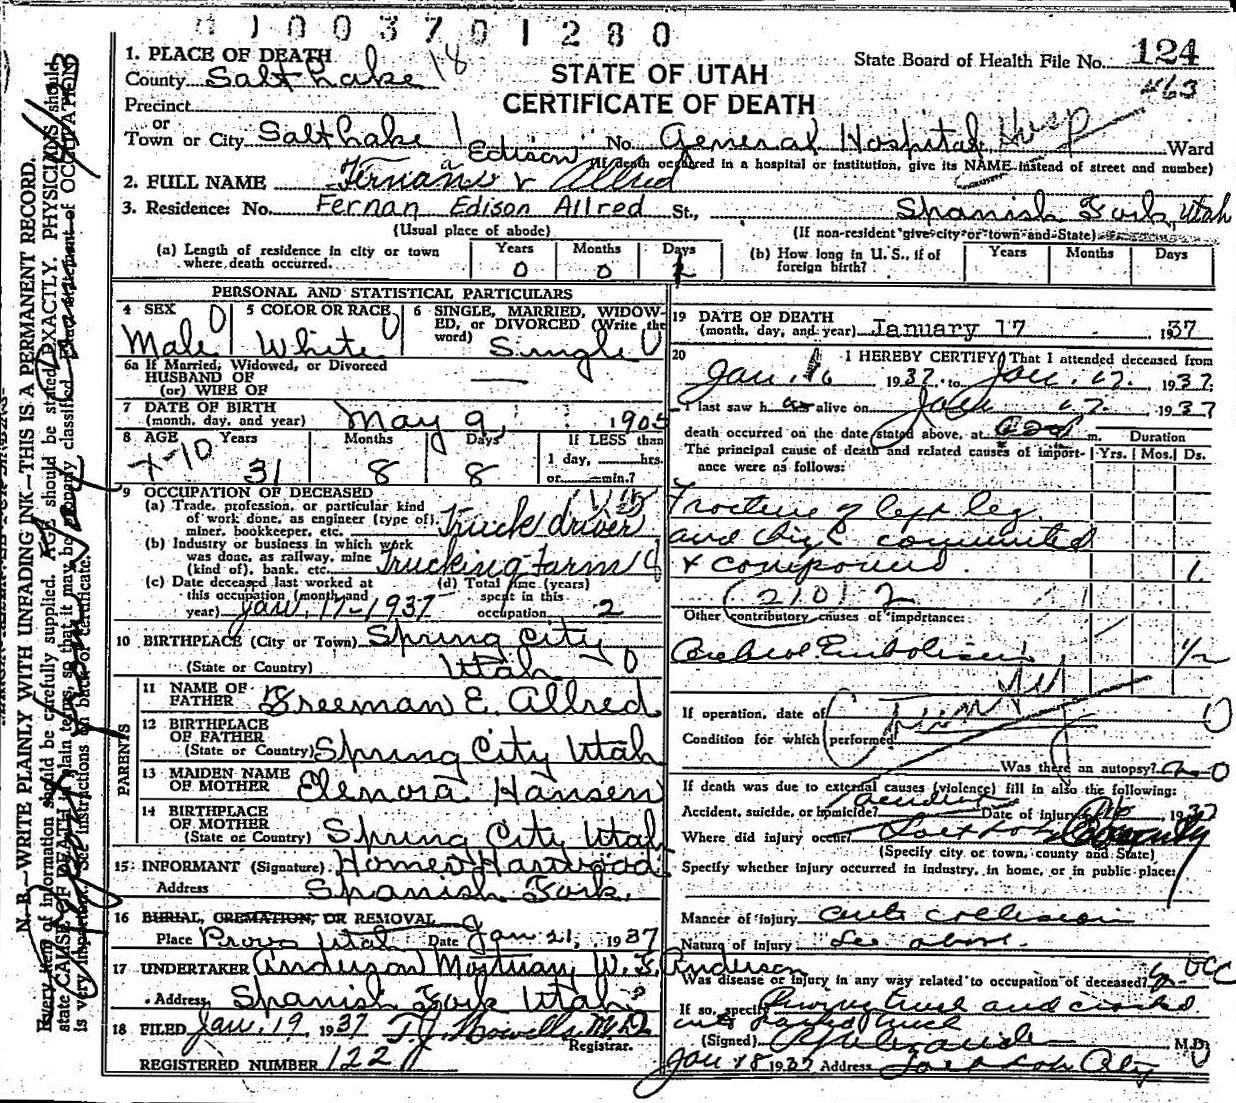 1003701280
1. PLACE OF DEATH
County Salt Lake 18
Precinct
or
Town or City Salt Lake 1
STATE OF UTAH
CERTIFICATE OF DEATH
State Board of Health File No. 124
463
No. General Hospital Hosp Ward
(If death occurred in a hospital or institution, give its NAME instead of street and number)
Edison
2. FULL NAME Allred
3. Residence: No. Fernan Edison Allred St., Spanish Fork, Utah
(Usual place of abode)
(If non-resident give city or town and State)
(a) Length of residence in city or town where death occurred. Years 0 Months 0 Days
(b) How long in U. S., if of foreign birth? Years Months Days
PERSONAL AND STATISTICAL PARTICULARS
4 SEX Male
5 COLOR OR RACE White
6 SINGLE, MARRIED, WIDOWED, or DIVORCED (Write the word) Single
6a If Married, Widowed, or Divorced
HUSBAND OF
(or) WIFE OF
7 DATE OF BIRTH
(month, day, and year) May 9, 1905
8 AGE Years 31 Months 8 Days 8
If LESS than
1 day, hrs.
or min.?
9 OCCUPATION OF DECEASED
(a) Trade, profession, or particular kind
of work done, as engineer (type of),
miner, bookkeeper, etc. Truck driver
(b) Industry or business in which work
was done, as railway, mine
(kind of), bank, etc. Trucking farm
(c) Date deceased last worked at
this occupation (month and
year) Jan. 17-1937
(d) Total time (years)
spent in this
occupation 2
10 BIRTHPLACE (City or Town) Spring City
(State or Country) Utah
PARENTS
11 NAME OF
FATHER Freeman E. Allred
12 BIRTHPLACE
OF FATHER
(State or Country) Spring City Utah
13 MAIDEN NAME
OF MOTHER Elenora Hansen
14 BIRTHPLACE
OF MOTHER
(State or Country) Spring City Utah
15 INFORMANT (Signature) Homer Harwood
Address Spanish Fork.
16 BURIAL, CREMATION, OR REMOVAL
Place Provo Utah Date Jan 21, 1937
17 UNDERTAKER Anderson Mortuary W. F. Anderson
Address Spanish Fork Utah
18 FILED Jan. 19, 1937 T.J. Howells M.D.
Registrar.
REGISTERED NUMBER 122
19 DATE OF DEATH
(month, day, and year) January 17 1937
20 I HEREBY CERTIFY, That I attended deceased from
Jan. 16 1937, to Jan. 17, 1937
I last saw h alive on Jan 17, 1937
death occurred on the date stated above, at m. Duration
The principal cause of death and related causes of importance were as follows: Yrs. Mos. Ds.
Fracture of left leg
and thigh comminuted
& compound. 1
210 2
Other contributory causes of importance:
Cerebral Embolism 1/2
If operation, date of
Condition for which performed
Was there an autopsy? no
If death was due to external causes (violence) fill in also the following:
Accident, suicide, or homicide? accident Date of injury 1937
Where did injury occur? Salt Lake County
(Specify city or town, county and State)
Specify whether injury occurred in industry, in home, or in public place:
Manner of injury auto collision
Nature of injury See above.
Was disease or injury in any way related to occupation of deceased?
If so, specify Driving truck and
(Signed) M.D.
Jan 18 1937 Address Salt Lake City
N. B.—WRITE PLAINLY WITH UNFADING INK—THIS IS A PERMANENT RECORD.
Every item of information should be carefully supplied. AGE should be stated EXACTLY. PHYSICIANS should
state CAUSE OF DEATH in plain terms, so that it may be properly classified. Exact statement of OCCUPATION
is very important. See instructions on back of certificate.